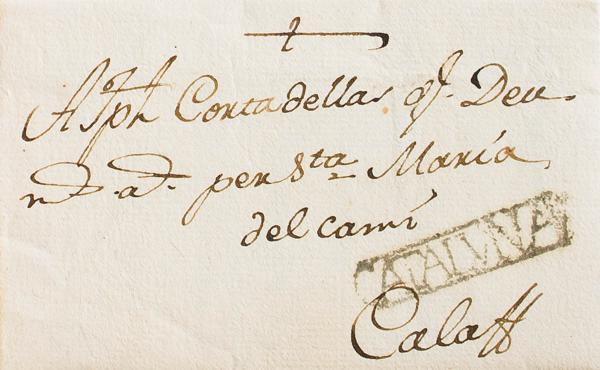 A Jph Cortadellas q. Deu
n. a. per Sta María
del camí
CATALUÑA
Calaff